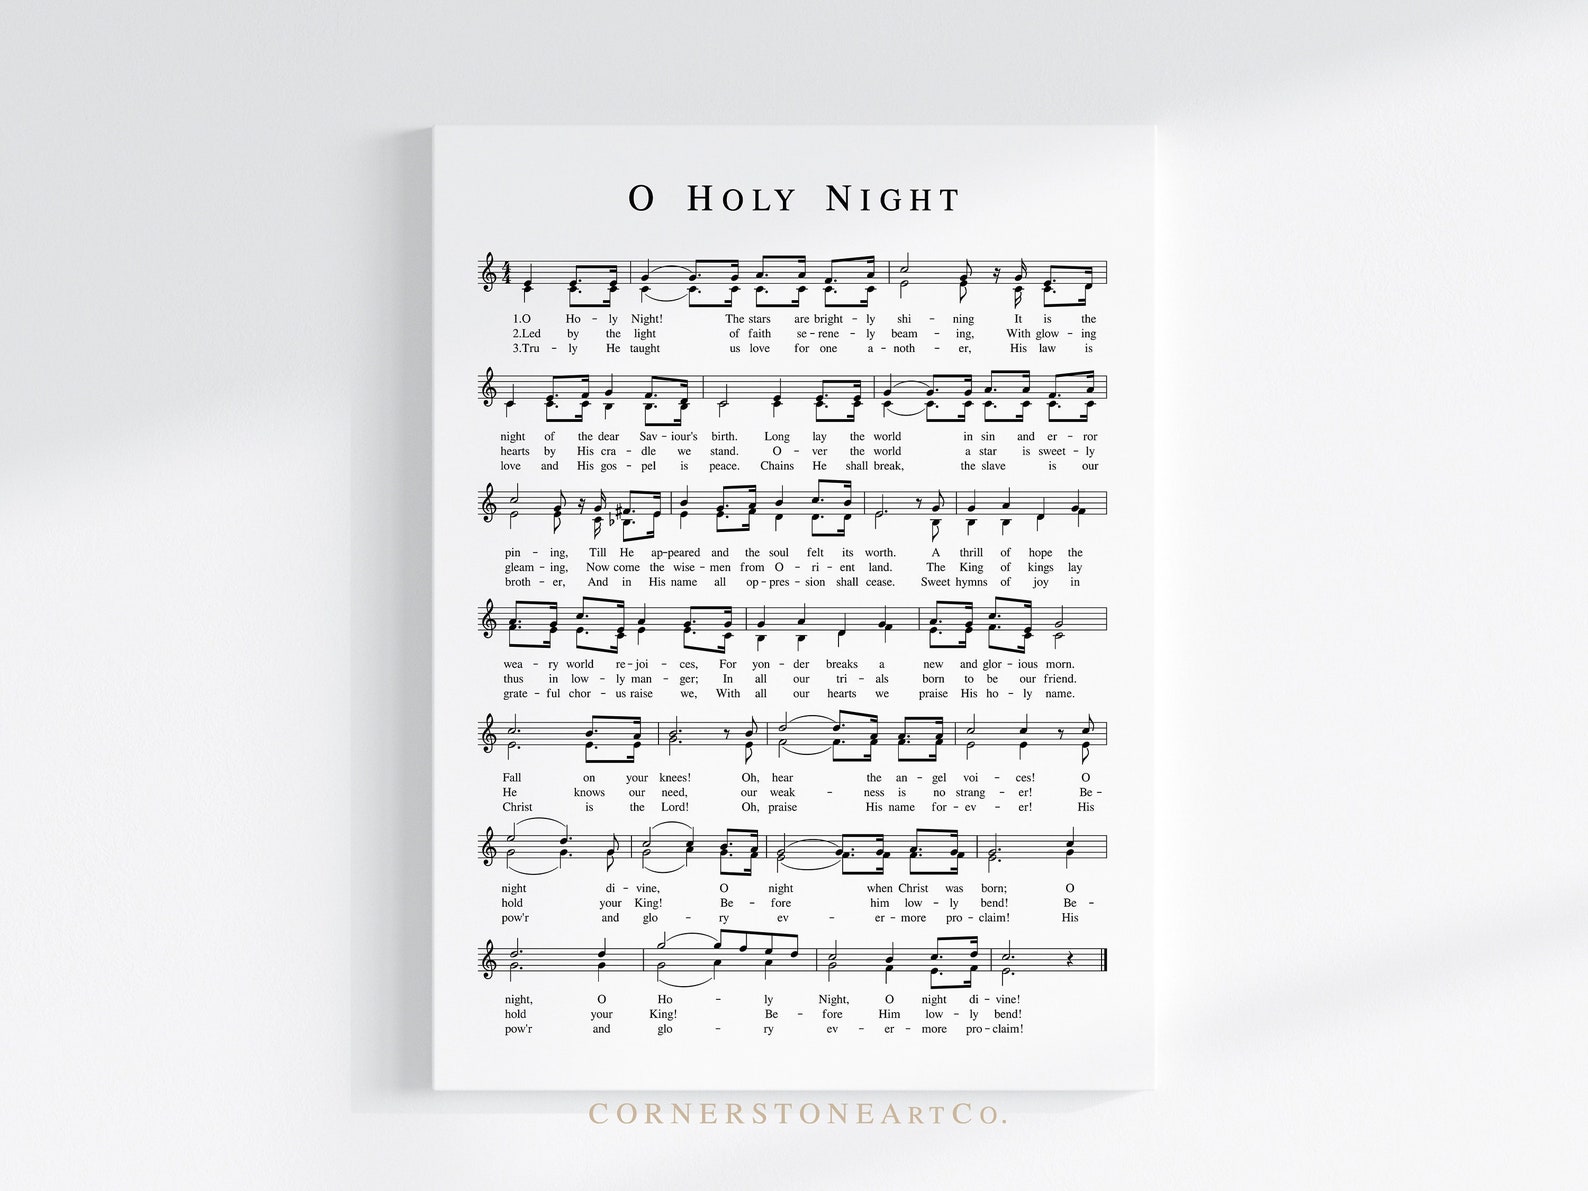 O HOLY NIGHT
1.O Ho - ly Night! The stars are bright - ly shi - ning It is the
2.Led by the light of faith se - rene - ly beam - ing, With glow - ing
3.Tru - ly He taught us love for one a - noth - er, His law is
night of the dear Sav - iour's birth. Long lay the world in sin and er - ror
hearts by His cra - dle we stand. O - ver the world a star is sweet - ly
love and His gos - pel is peace. Chains He shall break, the slave is our
pin - ing, Till He ap-peared and the soul felt its worth. A thrill of hope the
gleam - ing, Now come the wise - men from O - ri - ent land. The King of kings lay
broth - er, And in His name all op - pres - sion shall cease. Sweet hymns of joy in
wea - ry world re - joi - ces, For yon - der breaks a new and glor - ious morn.
thus in low - ly man - ger; In all our tri - als born to be our friend.
grate - ful chor - us raise we, With all our hearts we praise His ho - ly name.
Fall on your knees! Oh, hear the an - gel voi - ces! O
He knows our need, our weak - ness is no strang - er! Be -
Christ is the Lord! Oh, praise His name for - ev - er! His
night di - vine, O night when Christ was born; O
hold your King! Be - fore him low - ly bend! Be -
pow'r and glo - ry ev - er - more pro - claim! His
night, O Ho - ly Night, O night di - vine!
hold your King! Be - fore Him low - ly bend!
pow'r and glo - ry ev - er - more pro - claim!
CORNERSTONEARTCO.